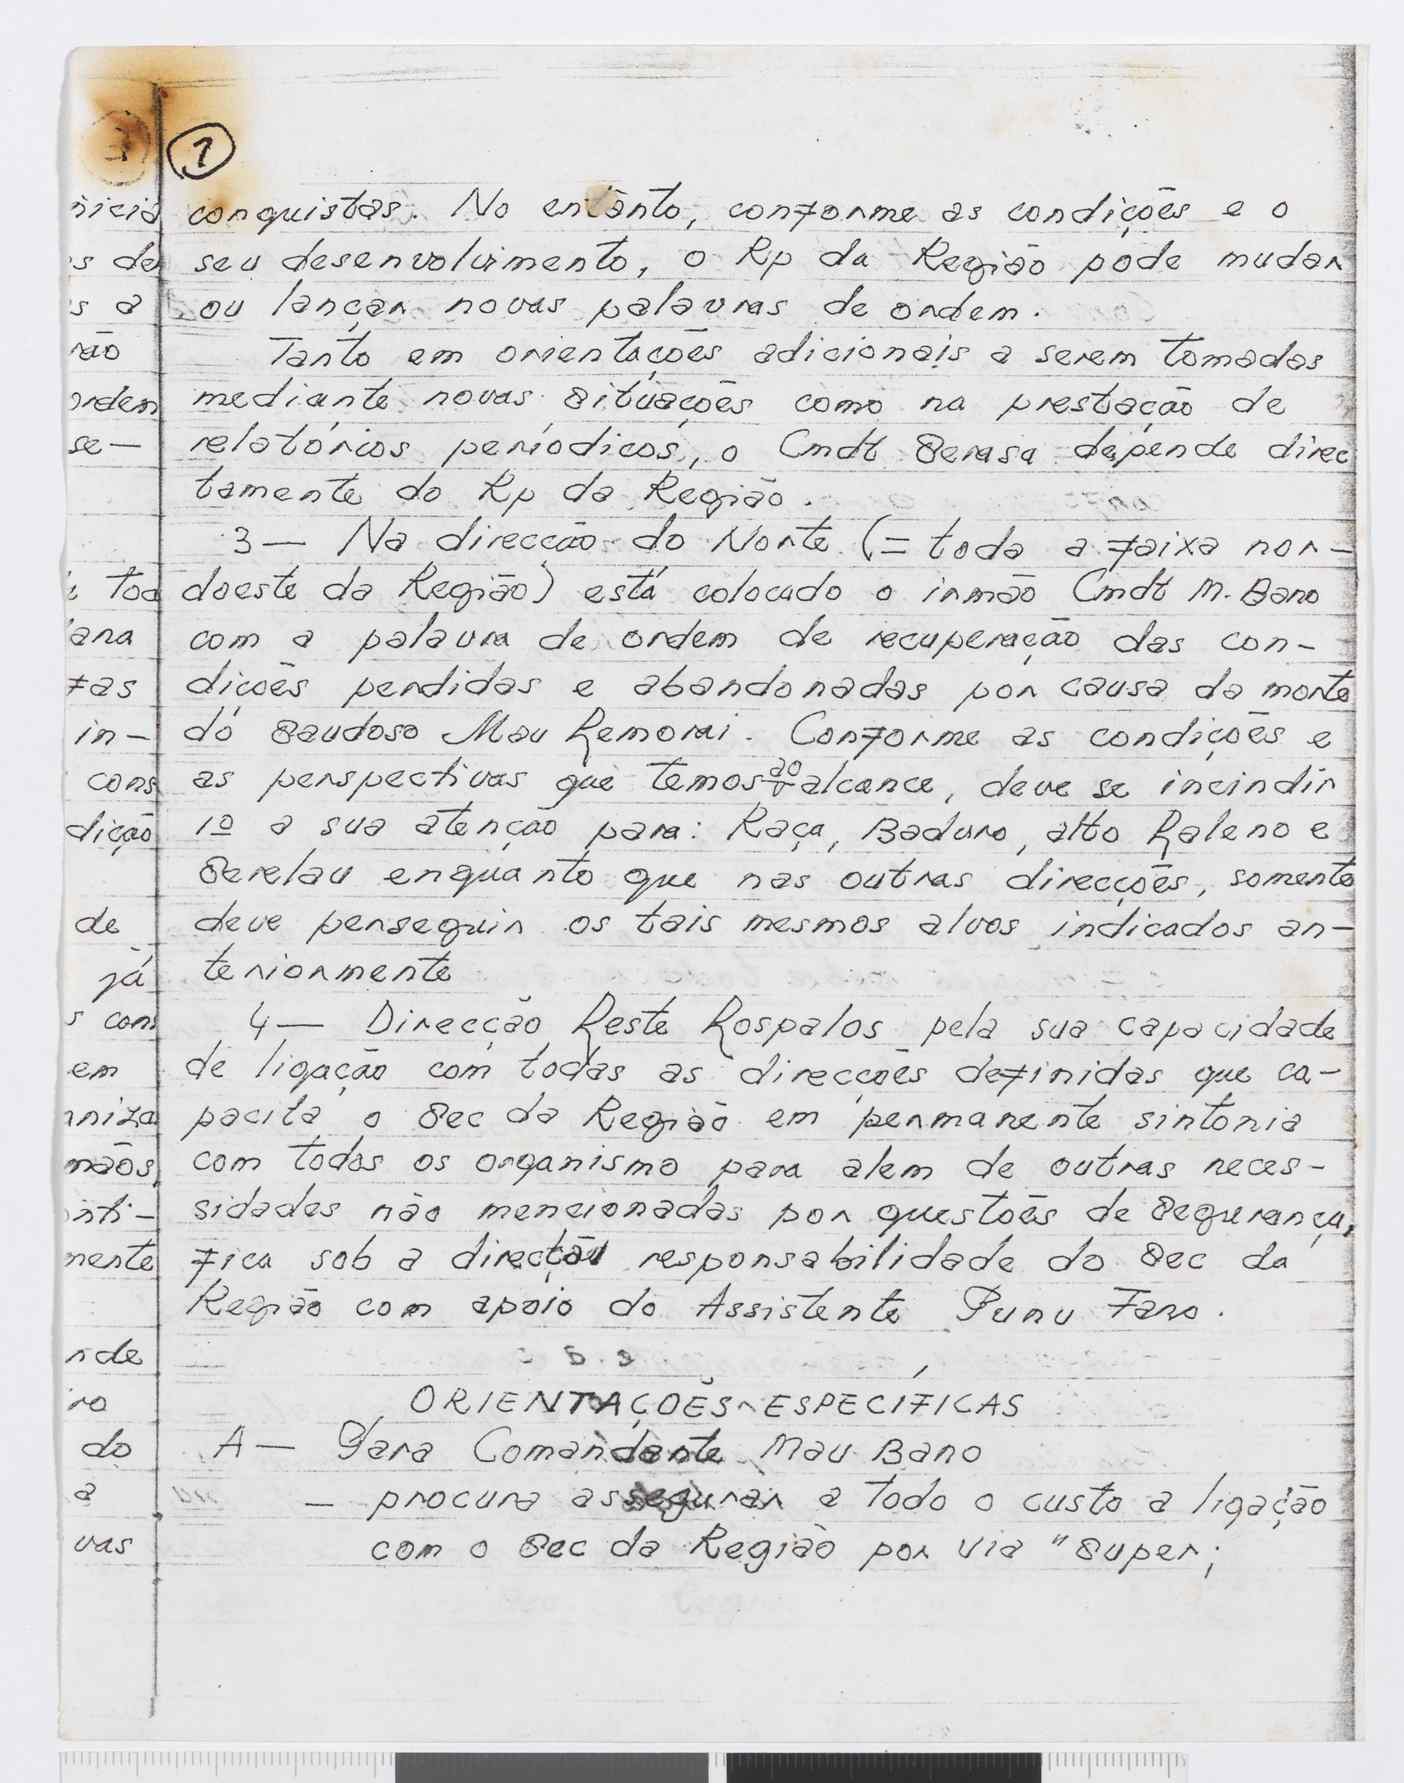 7
conquistas. No entanto, conforme as condições e o
seu desenvolvimento, o Rp da Região pode mudar
ou lançar novas palavras de ordem.
Tanto em orientações adicionais a serem tomadas
mediante novas situações como na prestação de
relatórios períodicos, o Cmdt Serasa depende direc
tamente do Rp da Região.
3 — Na direcção do Norte (= toda a faixa nor-
doeste da Região) está colocado o irmão Cmdt M. Bano
com a palavra de ordem de recuperação das con-
dições perdidas e abandonadas por causa da morte
do saudoso Mau Lemorai. Conforme as condições e
as perspectivas que temos ao alcance, deve se incindir
1º a sua atenção para: Raça, Baduro, alto Laleno e
Serelau enquanto que nas outras direcções, somente
deve perseguir os tais mesmos alvos indicados an-
teriormente
4 — Direcção Leste Lospalos pela sua capacidade
de ligação com todas as direcções definidas que ca-
pacita o Sec da Região em permanente sintonia
com todos os organismo para alem de outras neces-
sidades não mencionadas por questões de segurança,
fica sob a direcção responsabilidade do Sec da
Região com apoio do Assistente Punu Fano.
ORIENTAÇÕES ESPECÍFICAS
A — Para Comandante Mau Bano
— procura assegurar a todo o custo a ligação
com o Sec da Região por via "Super;
nicia
s de
s a
rão
ordem
se —
toa
ana
fas
in-
cons
dição
de
já
s con
em
niza
mãos,
nti-
mente
nde
ro
do
a
vas